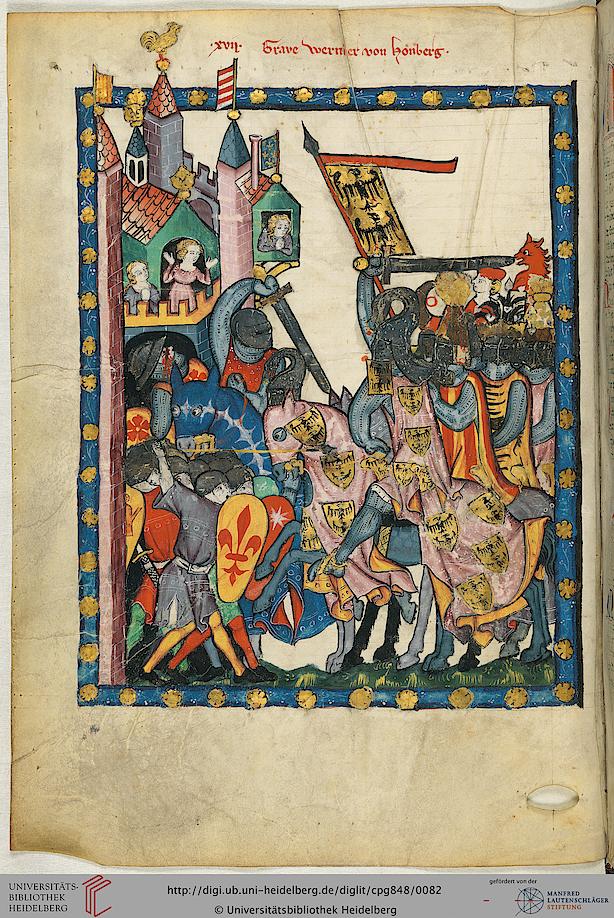 ·xvij· Grave wernher von honberg·
UNIVERSITÄTS-
BIBLIOTHEK
HEIDELBERG
http://digi.ub.uni-heidelberg.de/diglit/cpg848/0082
© Universitätsbibliothek Heidelberg
gefördert von der
MANFRED
LAUTENSCHLÄGER
STIFTUNG